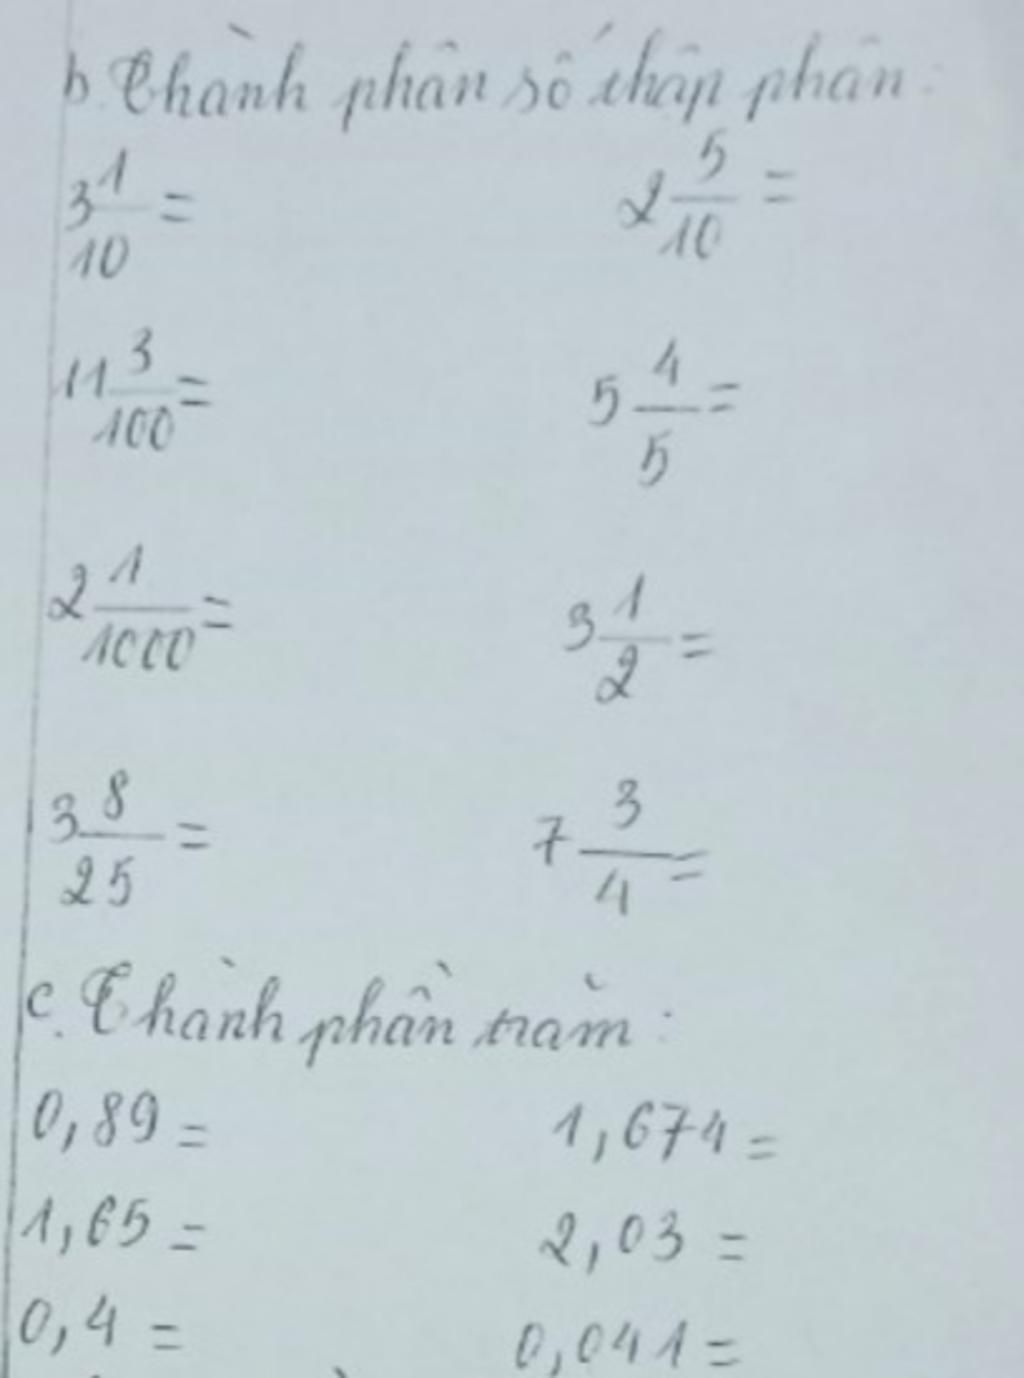 b. Thành phân số thập phân:
3 1/10 = 2 5/10 =
11 3/100 = 5 4/5 =
2 1/1000 = 3 1/2 =
3 8/25 = 7 3/4 =
c. Thành phần trăm:
0,89 = 1,674 =
1,65 = 2,03 =
0,4 = 0,041 =